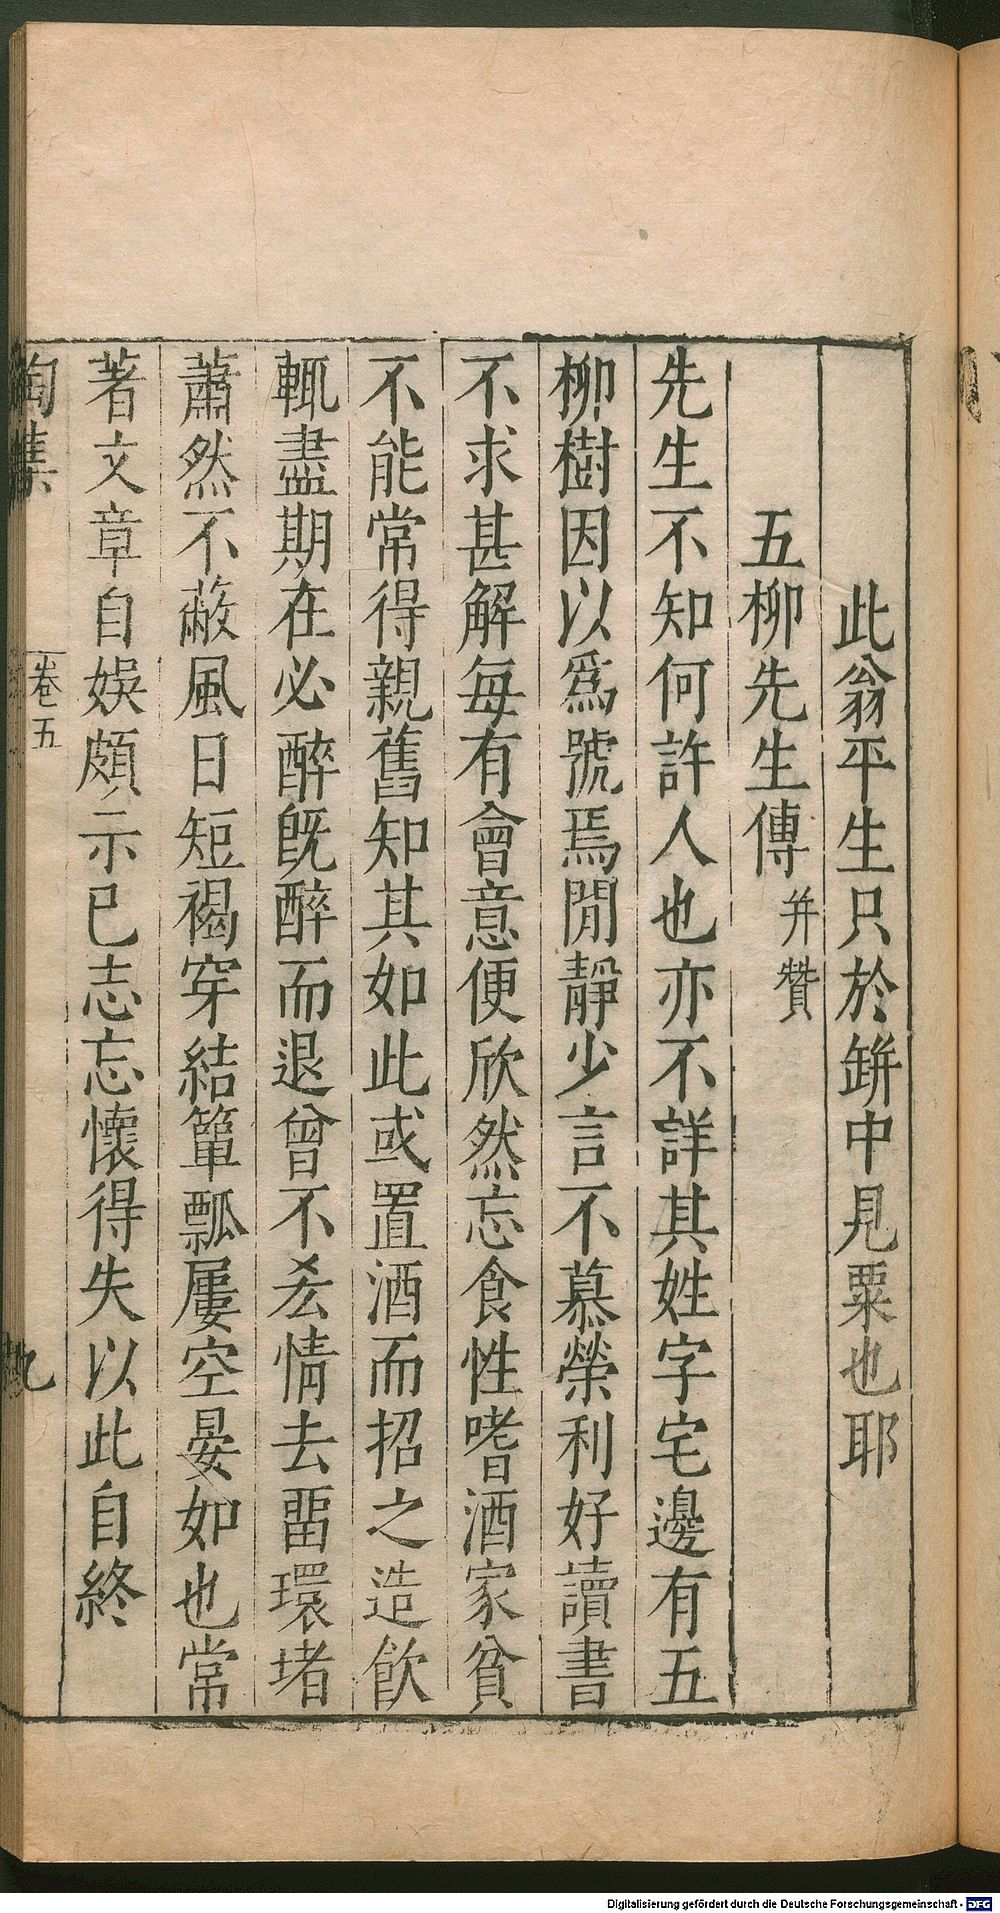 此翁平生只於缾中見粟也耶
五柳先生傳 并贊
先生不知何許人也亦不詳其姓字宅邊有五
柳樹因以爲號焉閒靜少言不慕榮利好讀書
不求甚解每有會意便欣然忘食性嗜酒家貧
不能常得親舊知其如此或置酒而招之造飮
輒盡期在必醉旣醉而退曾不吝情去畱環堵
蕭然不蔽風日短褐穿結簞瓢屢空晏如也常
著文章自娛頗示已志忘懷得失以此自終
陶集
卷五
九
Digitalisierung gefördert durch die Deutsche Forschungsgemeinschaft - DFG